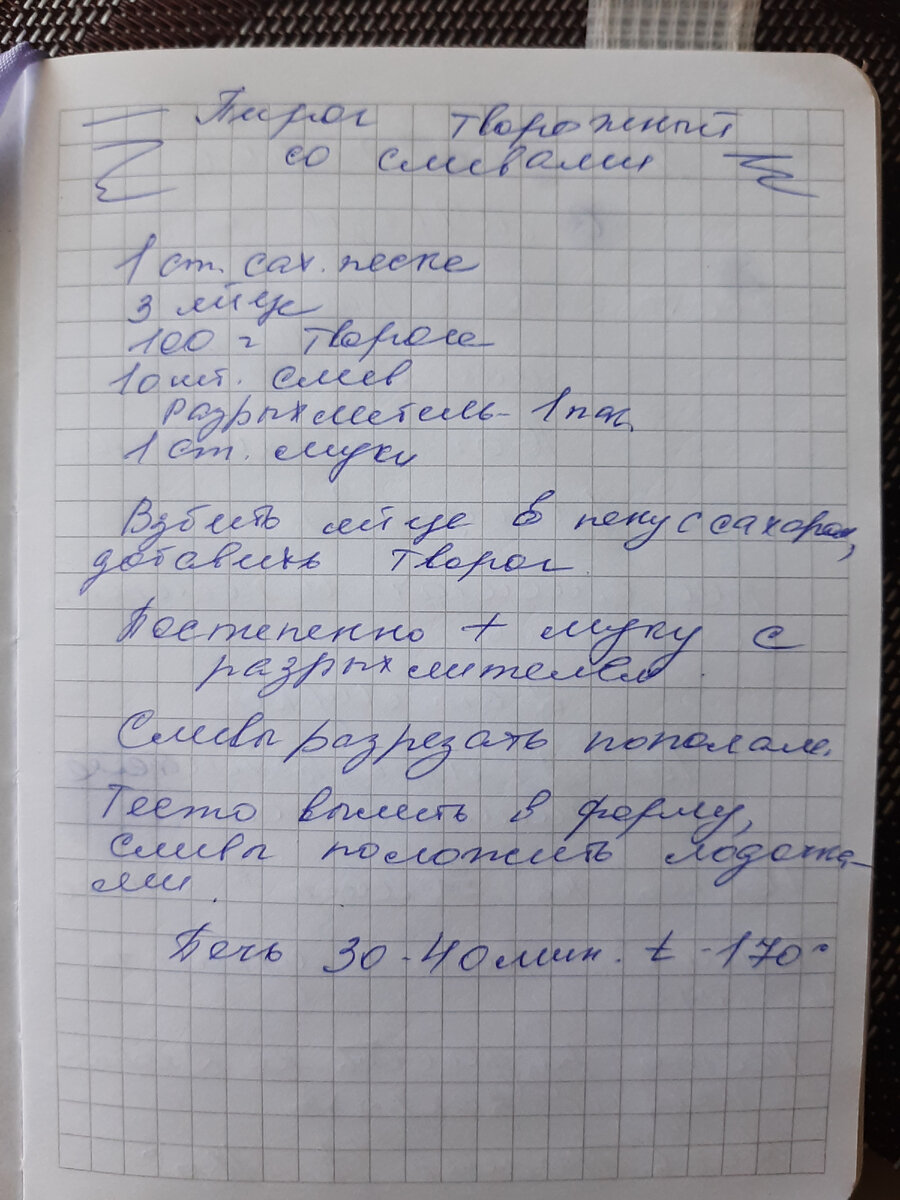 Пирог творожный
со сливами
1 ст. сах. песка
3 яйца
100 г творога
10 шт. слив
Разрыхлитель - 1 пак.
1 ст. муки
Взбить яйца в пену с сахаром,
добавить творог.
Постепенно + муку с
разрыхлителем.
Сливы разрезать пополам.
Тесто вылить в форму,
сливы положить лодочка-
ми.
Печь 30-40 мин. t - 170°